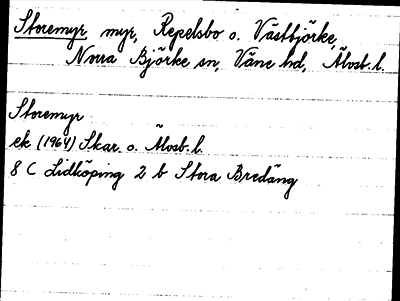 Storemyr, myr, Repelsbo o. Västbjörke,
Norra Björke sn, Väne hd, Älvsb. l.
Storemyr
ek (1964) Skar. o. Älvsb. l.
8 C Lidköping 2 b Stora Bredäng